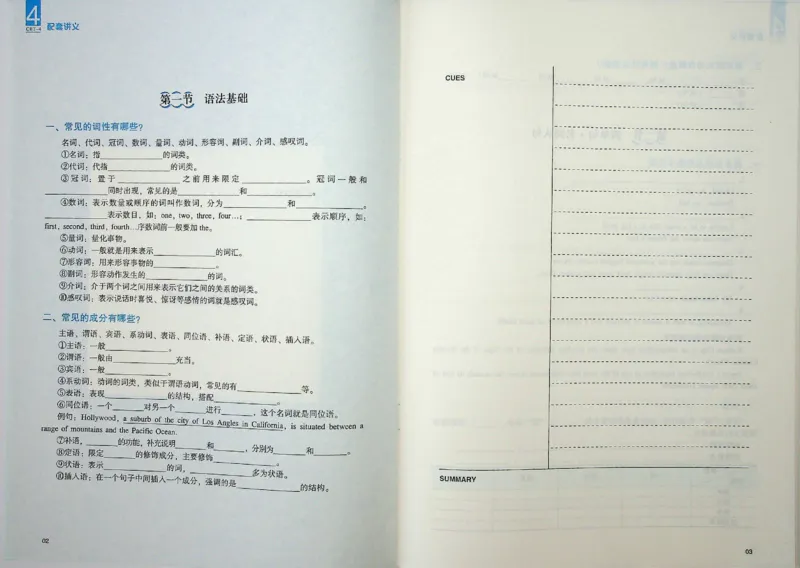 4
CET-4
配套讲义
第一节 语法基础
一、常见的词性有哪些?
名词、代词、冠词、数词、量词、动词、形容词、副词、介词、感叹词。
①名词：指______的词类。
②代词：代指______的词类。
③冠词：置于______之前用来限定______。冠词一般和
______同时出现，常见的是______和______。
④数词：表示数量或顺序的词叫作数词，分为______和______。
______表示数目，如：one, two, three, four…；______表示顺序，如：
first, second, third, fourth…序数词前一般要加the。
⑤量词：量化事物。
⑥动词：一般就是用来表示______的词汇。
⑦形容词：用来形容事物的______。
⑧副词：形容动作发生的______的词。
⑨介词：介于两个词之间用来表示它们之间的关系的词类。
⑩感叹词：表示说话时喜悦、惊讶等感情的词就是感叹词。
二、常见的成分有哪些?
主语、谓语、宾语、系动词、表语、同位语、补语、定语、状语、插入语。
①主语：一般______。
②谓语：一般由______充当。
③宾语：一般______。
④系动词：动词的词类，类似于谓语动词，常见的有______等。
⑤表语：表现______的结构，搭配______。
⑥同位语：一个______对另一个______进行______，这个名词就是同位语。
例句：Hollywood, a suburb of the city of Los Angeles in California, is situated between a
range of mountains and the Pacific Ocean.
⑦补语，______的功能，补充说明______和______，分别为______和______。
⑧定语：限定______的修饰成分，主要修饰______。
⑨状语：表示______的词，______多为状语。
⑩插入语：在一个句子中间插入一个成分，强调的是______的结构。
02
CUES
SUMMARY
03